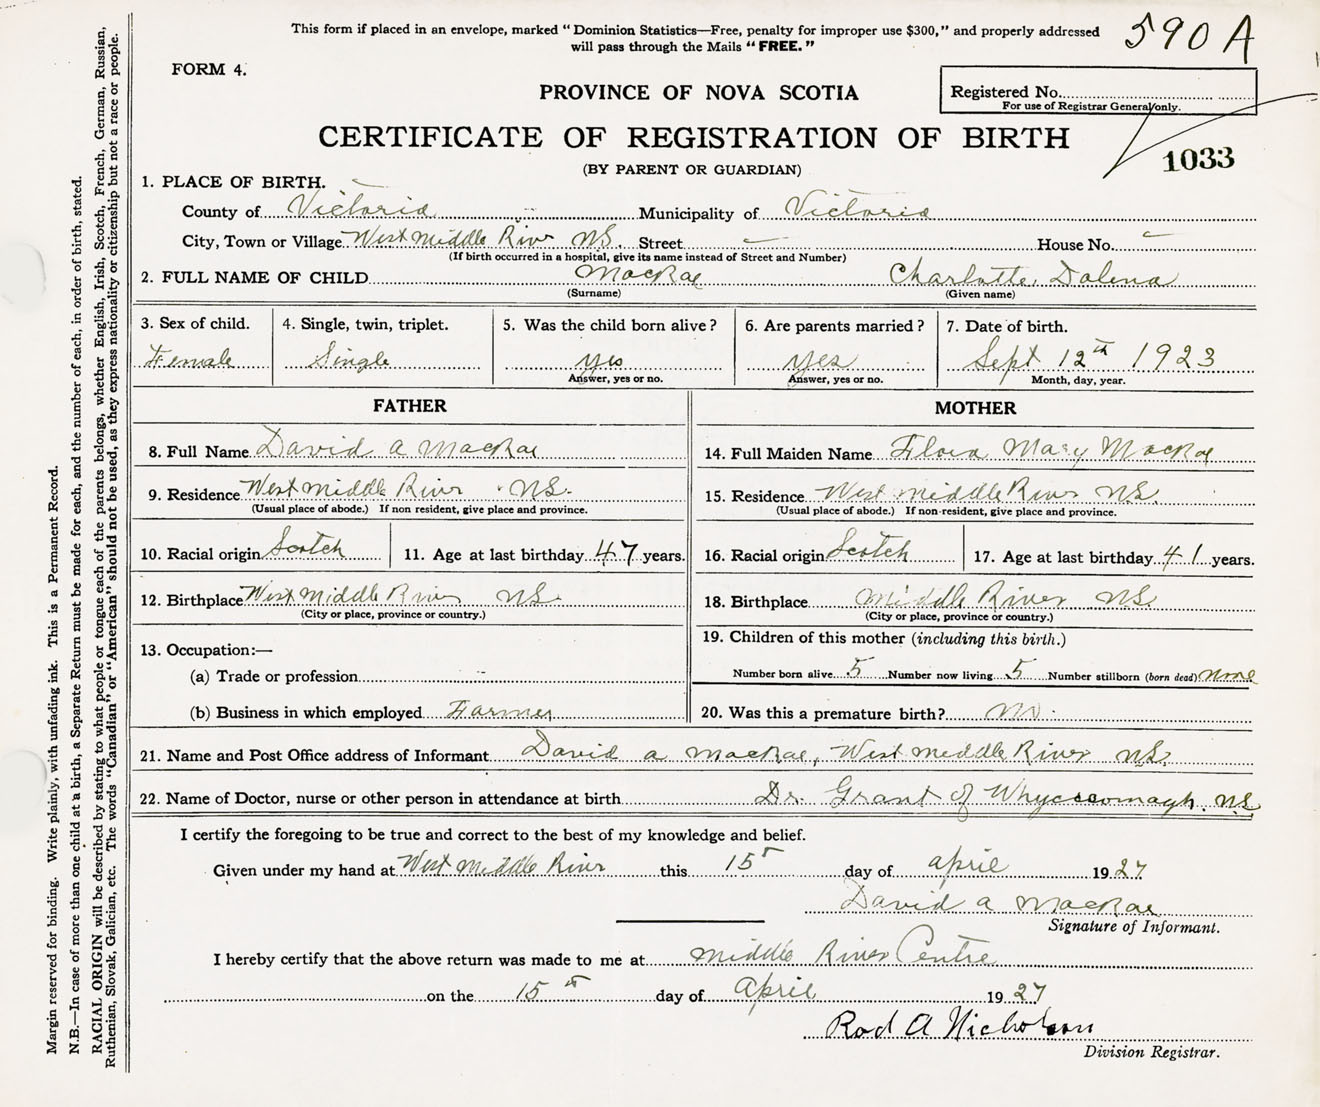 This form if placed in an envelope, marked “Dominion Statistics—Free, penalty for improper use $300,” and properly addressed
will pass through the Mails “FREE.”
590 A
FORM 4.
Registered No.
For use of Registrar General only.
PROVINCE OF NOVA SCOTIA
CERTIFICATE OF REGISTRATION OF BIRTH
(BY PARENT OR GUARDIAN)
1033
1. PLACE OF BIRTH.
County of Victoria Municipality of Victoria
City, Town or Village West Middle River N.S. Street House No.
(If birth occurred in a hospital, give its name instead of Street and Number)
2. FULL NAME OF CHILD MacRae Charlotte Dolena
(Surname) (Given name)
3. Sex of child. 4. Single, twin, triplet. 5. Was the child born alive? 6. Are parents married? 7. Date of birth.
Female Single yes yes Sept 12th 1923
Answer, yes or no. Answer, yes or no. Month, day, year.
FATHER
8. Full Name David A MacRae
9. Residence West Middle River N.S.
(Usual place of abode.) If non resident, give place and province.
10. Racial origin Scotch 11. Age at last birthday 47 years.
12. Birthplace West Middle River N.S.
(City or place, province or country.)
13. Occupation:—
(a) Trade or profession
(b) Business in which employed Farmer
MOTHER
14. Full Maiden Name Flora Mary MacRae
15. Residence West Middle River N.S.
(Usual place of abode.) If non-resident, give place and province.
16. Racial origin Scotch 17. Age at last birthday 41 years.
18. Birthplace Middle River N.S.
(City or place, province or country.)
19. Children of this mother (including this birth.)
Number born alive 5 Number now living 5 Number stillborn (born dead) none
20. Was this a premature birth? no.
21. Name and Post Office address of Informant David A MacRae, West Middle River N.S.
22. Name of Doctor, nurse or other person in attendance at birth Dr. Grant of Whycocomagh. N.S.
I certify the foregoing to be true and correct to the best of my knowledge and belief.
Given under my hand at West Middle River this 15th day of April 1927
David A MacRae
Signature of Informant.
I hereby certify that the above return was made to me at Middle River Centre
on the 15th day of April 1927
Rod A Nicholson
Division Registrar.
Margin reserved for binding. Write plainly, with unfading ink. This is a Permanent Record.
N.B.—In case of more than one child at a birth, a Separate Return must be made for each, and the number of each, in order of birth, stated.
RACIAL ORIGIN will be described by stating to what people or tongue each of the parents belongs, whether English, Irish, Scotch, French, German, Russian,
Ruthenian, Slovak, Galician, etc. The words “Canadian” or “American” should not be used, as they express nationality or citizenship but not a race or people.